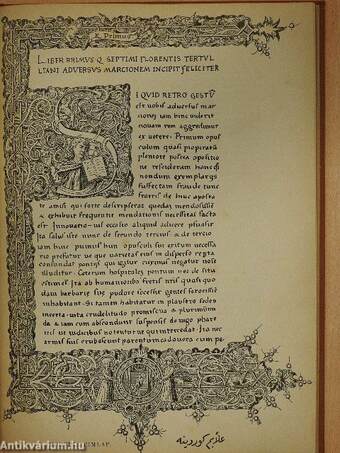 Liber Primus
LIBER PRIMUS Q SEPTIMI FLORENTIS TERTUL
LIANI ADVERSUS MARCIONEM INCIPIT FELICITER
SI QUID RETRO GESTŪ
est nobis adversus mar
cionem iam hinc viderit
novam rem aggredimur
ex vetere. Primum opus
culum quasi properatū
pleniore postea
rescideram hanc
nondum exemplariis
suffectam fraude tunc
fratris de hinc aposta
te amisi qui forte descripserat quedam mendosissime
& exhibuit frequentie emendationis necessitas facta
est Innovationis eius occasio aliquid adicere
Ita stilus iste nunc de secundo tertius & de tertio
iam hinc primus hunc opusculi sui exitum necessario
prefatur ne quem varietas eius in disperso reperta
confundat pontus qui igitur euxinus negatur
illuditur. Ceterum hospitales pontum nec de situ
estimes Ita ab humanioribus fretis nostris quasi quo
dam barbarie sue pudore secessit gentes ferocissime
inhabitant. Si tamen habitatur in plaustro sedes
incerta vita cruda libido promiscua & plurimum
nuda & iam cum abscondunt suspensis de iugo phare
tris ne
armis suis erubescunt parentum cadavera cum pe
علایم کوروینه
Antikvárium.hu